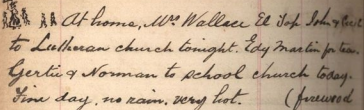 At home, Mrs Wallace El Top John &
to Lutheran church tonight. Edy Martin for tea.
Gertie & Norman to school church today.
Fine day, no rain, very hot. (firewood